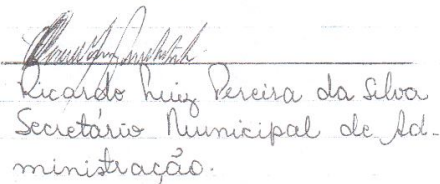 Ricardo Luiz Pereira da Silva
Secretário Municipal de Ad-
ministração.